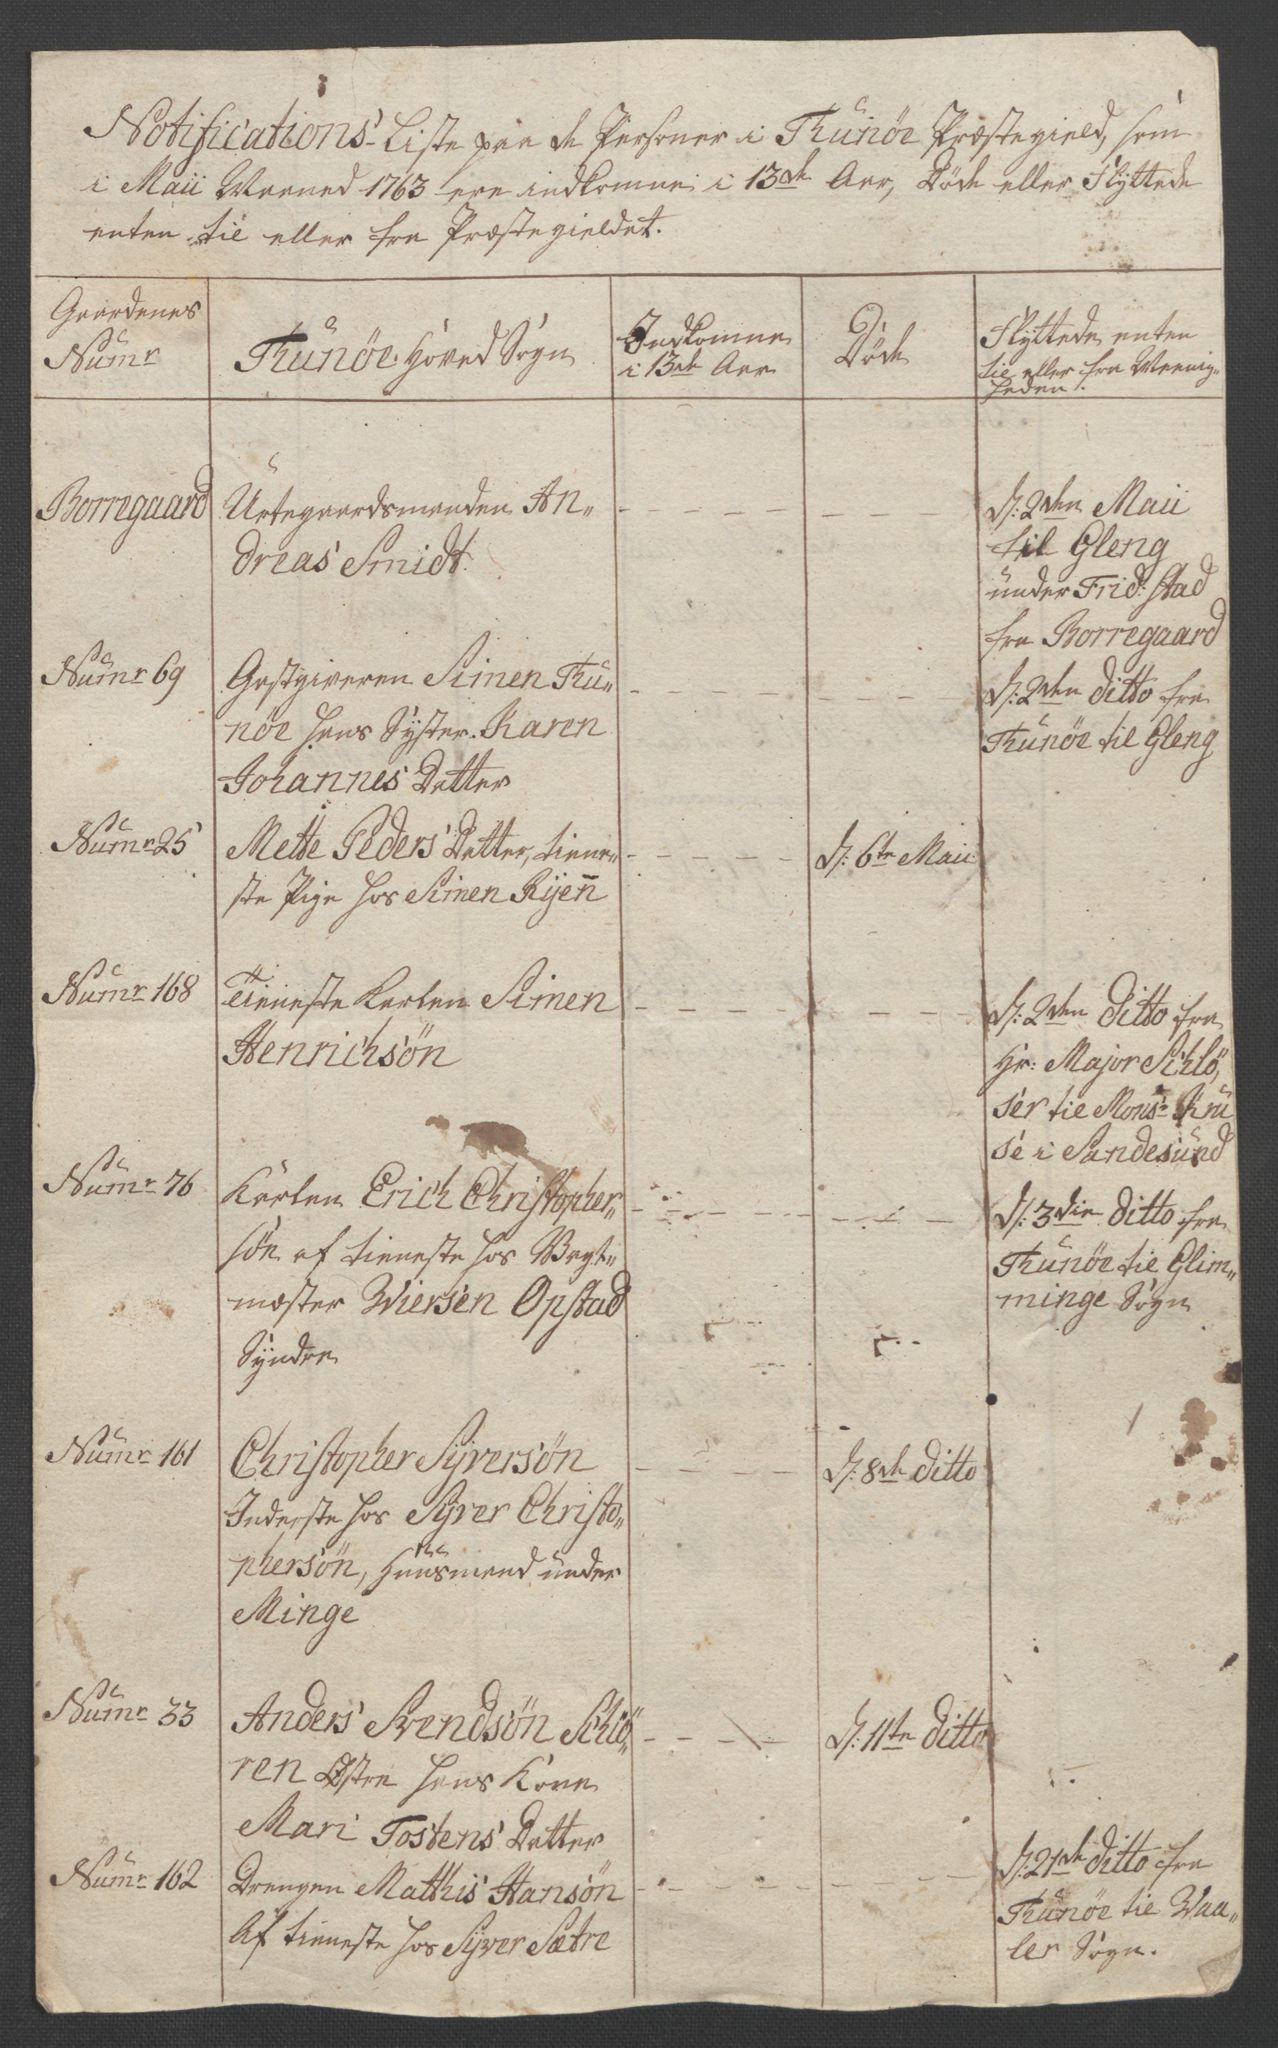 Notifications-Liste paa de Personer i Thunöe Præstegield, som
i Maii Maaned 1763 ere indkomne i 13de Aar, Döde eller Flyttede
enten til eller fra Præstegieldet.
Gaardenes
Numr
Thunöe Hoved Sogn
Indkomne
i 13de Aar
Döde
Flyttede enten
til eller fra Meenig-
heden.
Borregaard
Urtegaardsmanden An-
dreas Smidt.
D: 2den Maii
til Gleng
under Frid: stad
fra Borregaard
Numr 69
Gestgiveren Simen Thu-
nöe hans Syster Karen
Johannes Datter
D: 2den ditto fra
Thunöe til Gleng
Numr 25
Mette Peders Datter, tiene-
ste Pige hos Simen Ryen
D: 6te Maii
Numr 168
Tieneste Karlen Simen
Henrichsön
D: 2den ditto fra
Hr: Major Schlö-
ser til Monsr Kru
se i Sandesund
Numr 76
Karlen Erich Christopher-
sön af tieneste hos Vagt-
mester Wiersen Opstad
Syndre
D: 3die ditto fra
Thunöe til Glim-
minge Sogn
Numr 161
Christopher Syversön
Inderste hos Syver Christo-
phersön, Huusmand under
Minge
D: 8de ditto
Numr 33
Anders Svendsön Schiö-
ren Østre hans Kone
Mari Tostens Datter
D: 11te ditto
Numr 162
Drengen Mathis Hansön
Af tieneste hos Syver Sætre
D: 21de ditto fra
Thunöe til Waa-
ler Sogn.